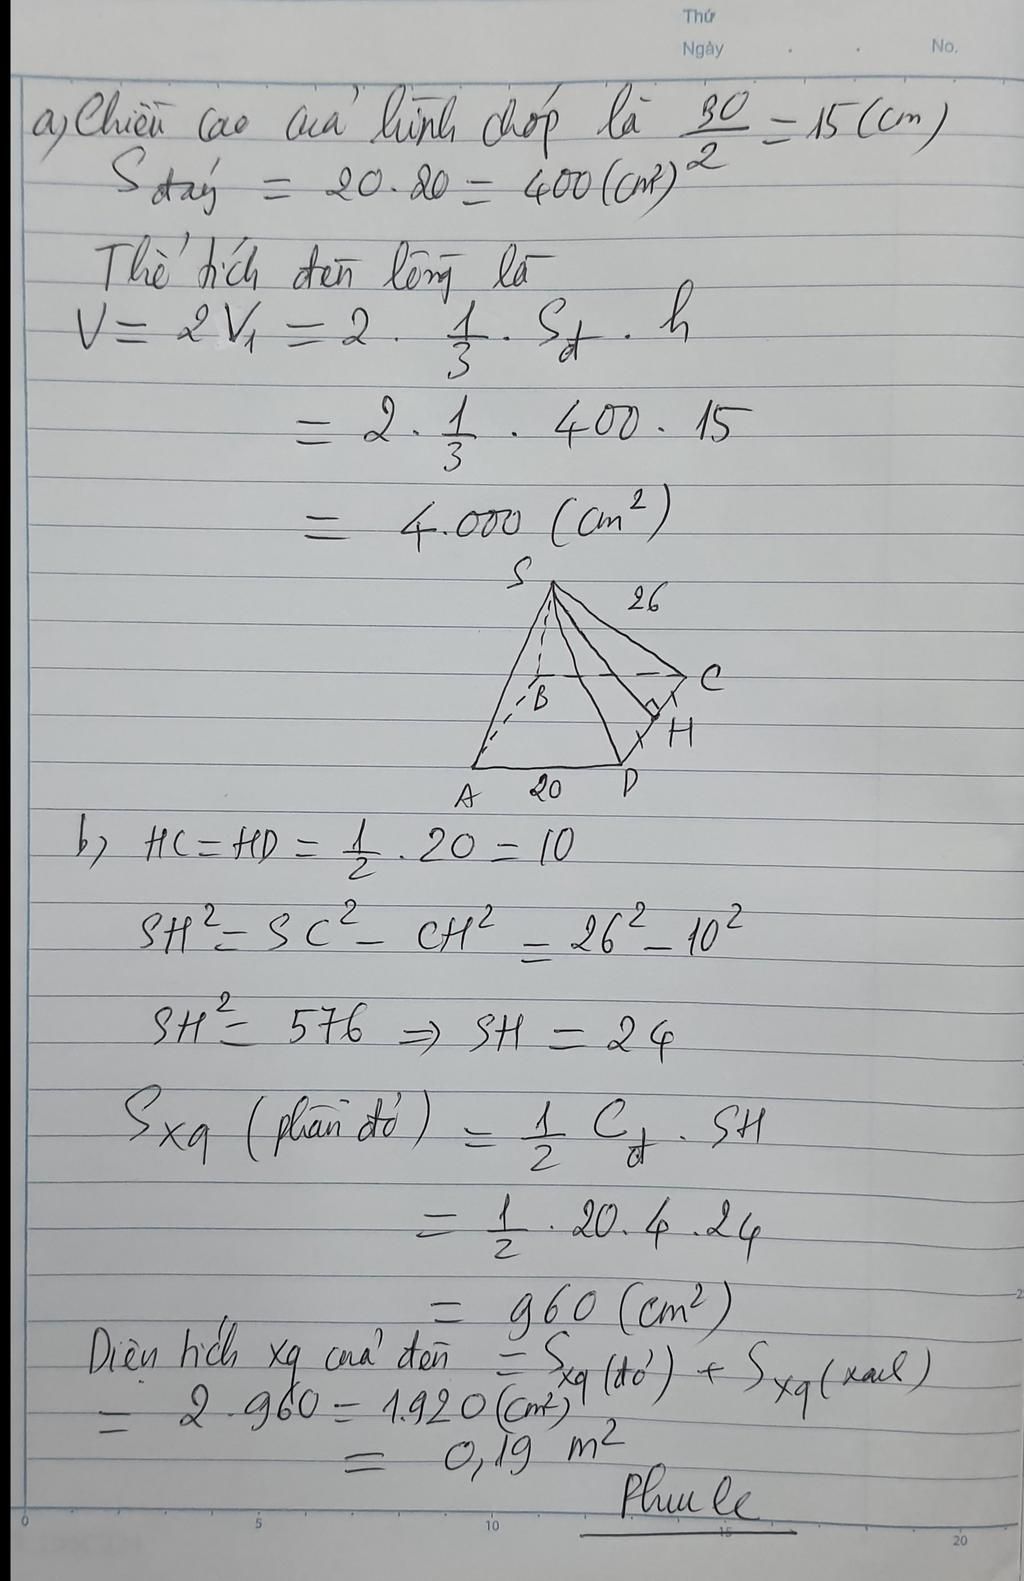 Thứ
Ngày . . No.
a) Chiều cao của hình chóp là 30/2 = 15 (cm)
S đáy = 20.20 = 400 (cm²)
Thể tích đèn lồng là
V = 2V₁ = 2 . 1/3 . Sđ . h
= 2 . 1/3 . 400 . 15
= 4.000 (cm²)
S
26
B
C
H
A
20
D
b) HC = HD = 1/2 . 20 = 10
SH² = SC² - CH² = 26² - 10²
SH² = 576 => SH = 24
Sxq (phần đỏ) = 1/2 Cđ . SH
= 1/2 . 20.4.24
= 960 (cm²)
Diện tích xq của đèn = Sxq (đỏ) + Sxq (xanh)
= 2.960 = 1.920 (cm²)
= 0,19 m²
Phuu le
0 5 10 15 20